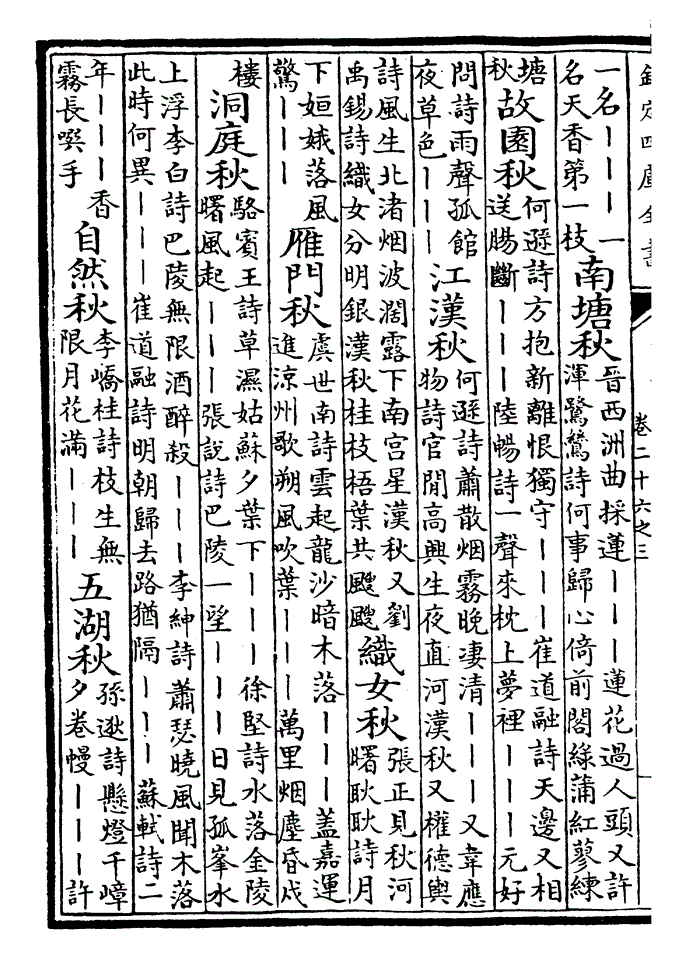 欽定四庫全書
卷二十六之三
一名｜｜｜一
名天香第一枝
南塘秋
晉西洲曲採蓮｜｜｜蓮花過人頭又許
渾鷺鷥詩何事歸心倚前閣綠蒲紅蓼練
塘
秋
故園秋
何遜詩方抱新離恨獨守｜｜｜崔道融詩天邊又相
送腸斷｜｜｜陸暢詩一聲來枕上夢裡｜｜｜元好
問詩雨聲孤館
夜草色｜｜｜
江漢秋
何遜詩蕭散烟霧晚凄清｜｜｜又韋應
物詩官閒高興生夜直河漢秋又權德輿
詩風生北渚烟波濶露下南宮星漢秋又劉
禹錫詩織女分明銀漢秋桂枝梧葉共颼颼
織女秋
張正見秋河
曙耿耿詩月
下姮娥落風
驚｜｜｜
雁門秋
虞世南詩雲起龍沙暗木落｜｜｜蓋嘉運
進涼州歌朔風吹葉｜｜｜萬里烟塵昏戍
樓
洞庭秋
駱賓王詩草濕姑蘇夕葉下｜｜｜徐堅詩水落金陵
曙風起｜｜｜張說詩巴陵一望｜｜｜日見孤峯水
上浮李白詩巴陵無限酒醉殺｜｜｜李紳詩蕭瑟曉風聞木落
此時何異｜｜｜崔道融詩明朝歸去路猶隔｜｜｜蘇軾詩二
年｜｜｜香
霧長噀手
自然秋
李嶠桂詩枝生無
限月花滿｜｜｜
五湖秋
孫逖詩懸燈千嶂
夕卷幔｜｜｜許